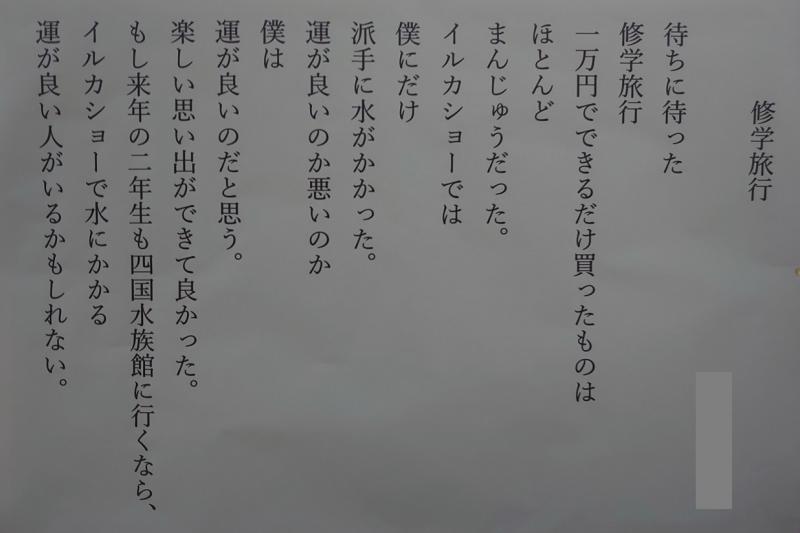 修学旅行
待ちに待った
修学旅行
一万円でできるだけ買ったものは
ほとんど
まんじゅうだった。
イルカショーでは
僕にだけ
派手に水がかかった。
運が良いのか悪いのか
僕は
運が良いのだと思う。
楽しい思い出ができて良かった。
もし来年の二年生も四国水族館に行くなら、
イルカショーで水にかかる
運が良い人がいるかもしれない。